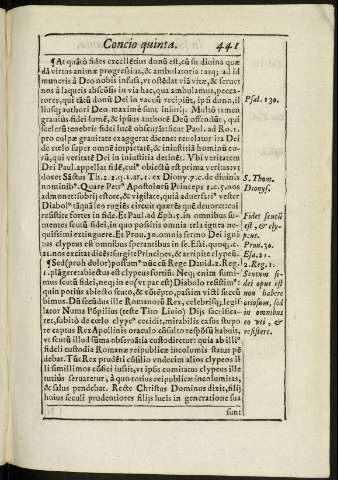 Concio quinta. 441
¶At quãtò fides excellẽtius donũ est, cũ sit diuina quæ
dã virtus animæ progressiua, & ambulatoria tatq; ad id
muneris à Deo nobis infusa, vt ostẽdat via vitæ, & seruet
nos à laqueis abscõsis in via hac, qua ambulamus, pecca-
tores, qui tãtũ donũ Dei in vacuũ recipiũt, ipsi dono, il
liusq; authori Deo maximè sunt iniurij. Multò tamen
grauius fidei lumẽ, & ipsius authorẽ Deũ offendũt, qui
scelerũ tenebris fidei lucẽ obscurãt: sicut Paul. ad Ro. 1.
pro culpæ grauitate exaggerãdi dicens: reuelatur ira Dei
de cœlo super omnẽ impietatẽ, & iniustitiã hominũ eo-
rũ, qui veritatẽ Dei in iniustitia detinẽt. Vbi veritatem
Dei Paul. appellat fidẽ, cui' obiectũ est prima veritas: vt
docet Sãctus Th. 2. 2. q. 1. ar. 1. ex Diony. 7. c. de diuinis
nominib'. Quare Petr' Apostolorũ Princeps 1. c. 5. nos
admonet: sobrij estote, & vigilate, quia aduersari' vester
Diabol' tãquã leo rugiẽs circuit quærẽs quẽ deuoret: cui
resistite fortes in fide. Et Paul. ad Eph. 5. in omnibus su-
mentes scutũ fidei, in quo possitis omnia tela ignea ne-
quissimi extinguere. Et Prou. 30. omnis sermo Dei igni
tus clypeus est omnibus sperantibus in se. Esti. quoq; c.
21. nos excitat dicẽs: surgite Prĩncipes, & arripite clypeũ.
¶Sed (proh dolor) possum' nũc cũ Rege Dauid 2. Reg.
1. plãgere: abiectus est clypeus fortiũ. Neq; enim sumi-
mus scutũ fidei, neq; in eo (vt par est) Diabolo resistim':
quin potius abiecto scuto, & cõcepto, passim victi succũ
bimus. Dũ secũdus ille Romanorũ Rex, celebrisq; legis
lator Numa Põpilius (teste Tito Liuio) Dijs sacrifica-
ret, subitò de cœlo clype' cecidit, mirabilis casus stupo
re captus Rex Apollinis oraculo cõsulto respõsũ habuit,
vt scutũ illud sũma obseruãtia custodiretur: quia ab illi'
fideli custodia Romanæ reipublicæ incolumis status pẽ
debat. Tũc Rex pruẽti cõsilio vndecim alios clypeos il
li simillimos cõfici iussit, vt ipsis comitatus clypeus ille
tutiùs seruaretur, à quo totius reipublicæ incolumitas,
& salus pendebat. Recte Christus Dominus dixit, filij
huius seculi prudentiores filijs lucis in generatione sua
sunt
Psal. 130.
S. Thom.
Dionys.
Fidet scutũ
est, & cly-
peus.
Prou. 30.
Esa. 21.
2. Reg. 1.
Scutum fi-
dei opus est
non habere
otiosum, sed
in omnibus
eo vti, &
resistere.